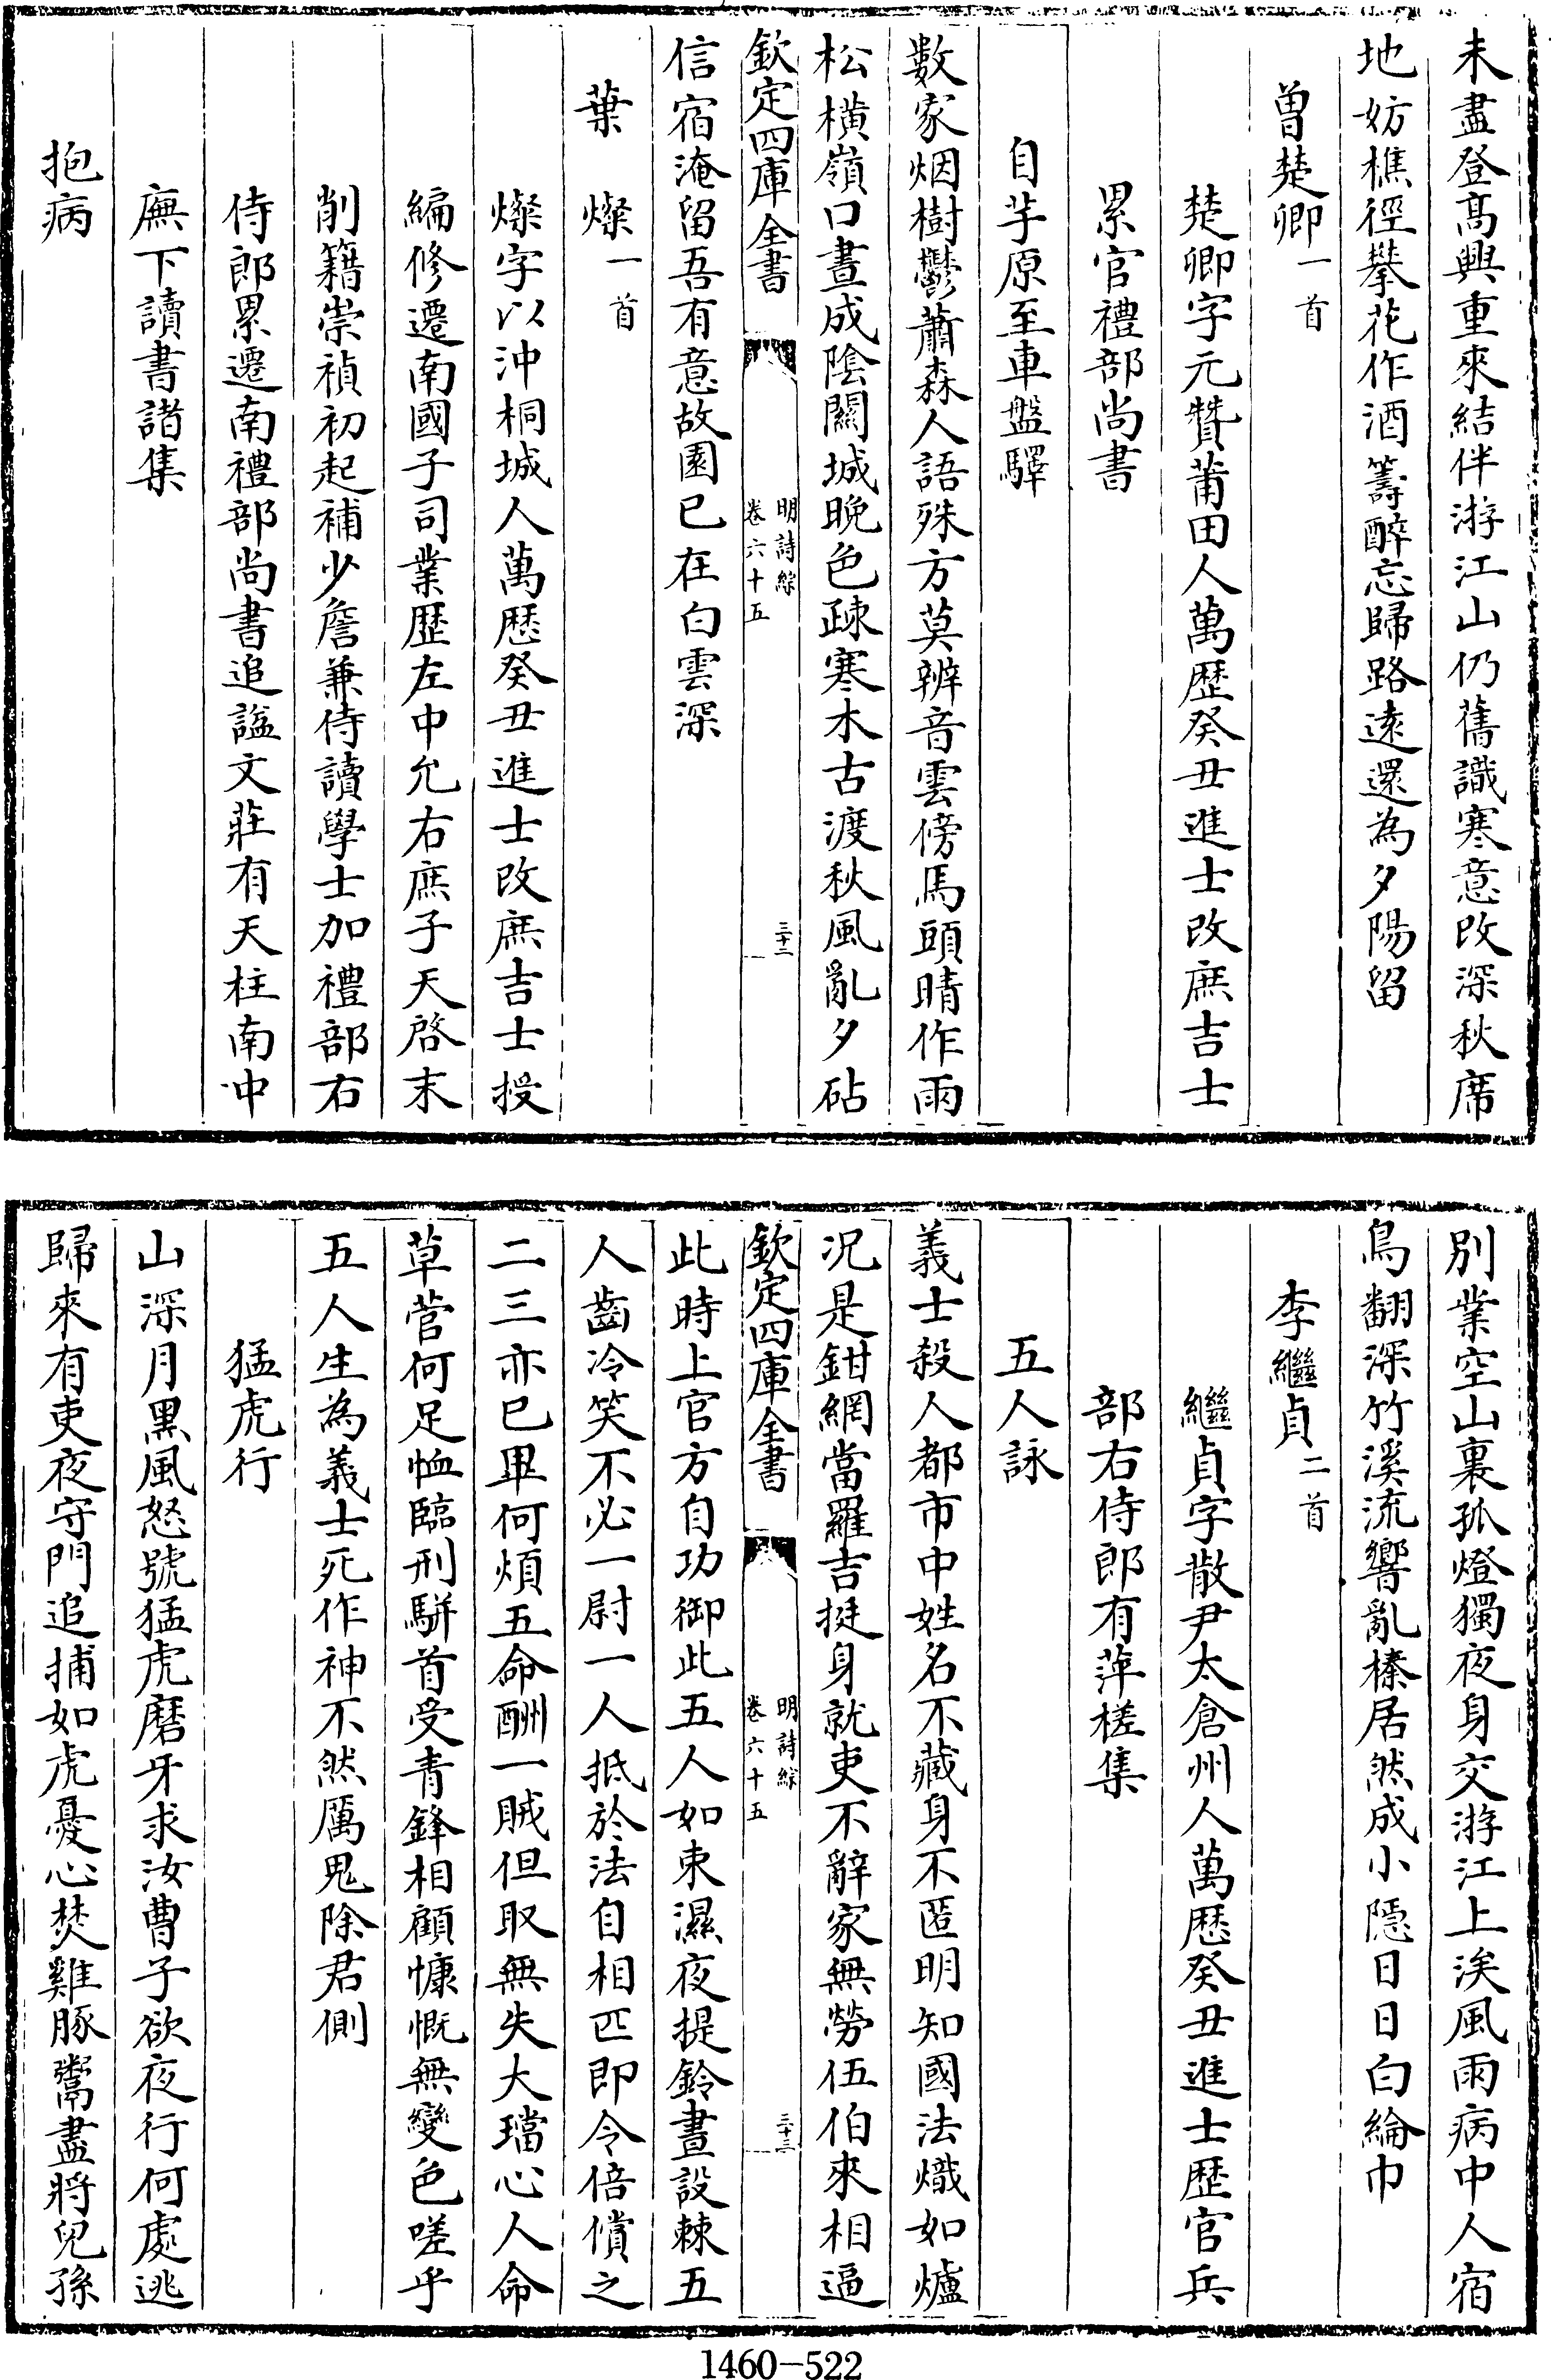 未盡登髙興重來結伴游江山仍舊識寒意改深秋席
地妨樵徑攀花作酒籌醉忘歸路逺還為夕陽留
曽楚卿一首
楚卿字元贊莆田人萬歴癸丑進士改庶吉士
累官禮部尚書
自芋原至車盤驛
數家烟樹鬱蕭森人語殊方莫辨音雲傍馬頭晴作雨
松橫嶺口晝成陰關城晚色疎寒木古渡秋風亂夕砧
欽定四庫全書
明詩綜
卷六十五
三十二
信宿淹留吾有意故園已在白雲深
葉燦一首
燦字以沖桐城人萬歴癸丑進士改庶吉士授
編修遷南國子司業歴左中允右庶子天啓末
削籍崇禎初起補少詹兼侍讀學士加禮部右
侍郎累遷南禮部尚書追諡文莊有天柱南中
廡下讀書諸集
抱病
別業空山裏孤燈獨夜身交游江上涘風雨病中人宿
鳥翻深竹溪流響亂榛居然成小隱日日白綸巾
李繼貞二首
繼貞字散尹太倉州人萬歴癸丑進士歴官兵
部右侍郎有萍槎集
五人詠
義士殺人都市中姓名不藏身不匿明知國法熾如爐
况是鉗網當羅吉挺身就吏不辭家無勞伍伯來相逼
欽定四庫全書
明詩綜
卷六十五
三十三
此時上官方自功御此五人如束濕夜提鈴晝設棘五
人齒冷笑不必一尉一人抵於法自相匹即令倍償之
二三亦已畢何煩五命酬一賊但取無失大璫心人命
草菅何足恤臨刑駢首受青鋒相顧慷慨無變色嗟乎
五人生為義士死作神不然厲鬼除君側
猛虎行
山深月黒風怒號猛虎磨牙求汝曹子欲夜行何處逃
歸來有吏夜守門追捕如虎憂心焚雞豚鬻盡將兒孫
1460-522